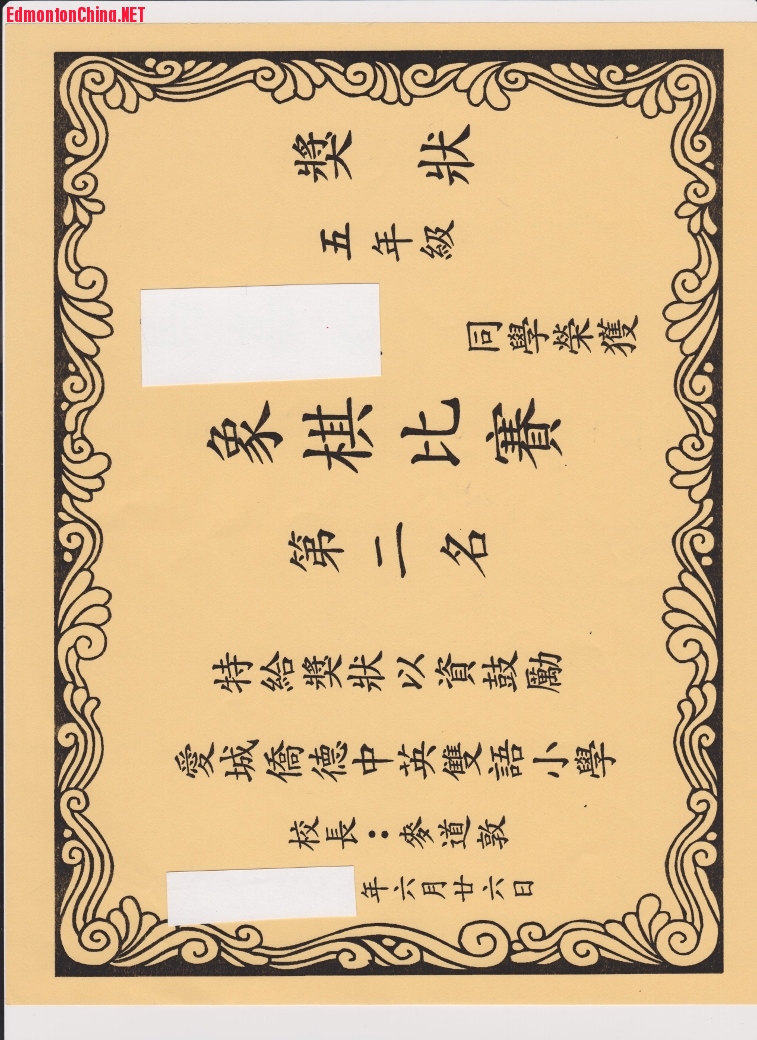 EdmontonChina.NET
獎狀
五年級
同學榮獲
象棋比賽
第二名
特給獎狀以資鼓勵
愛城僑德中英雙語小學
校長：麥道敦
年六月廿六日